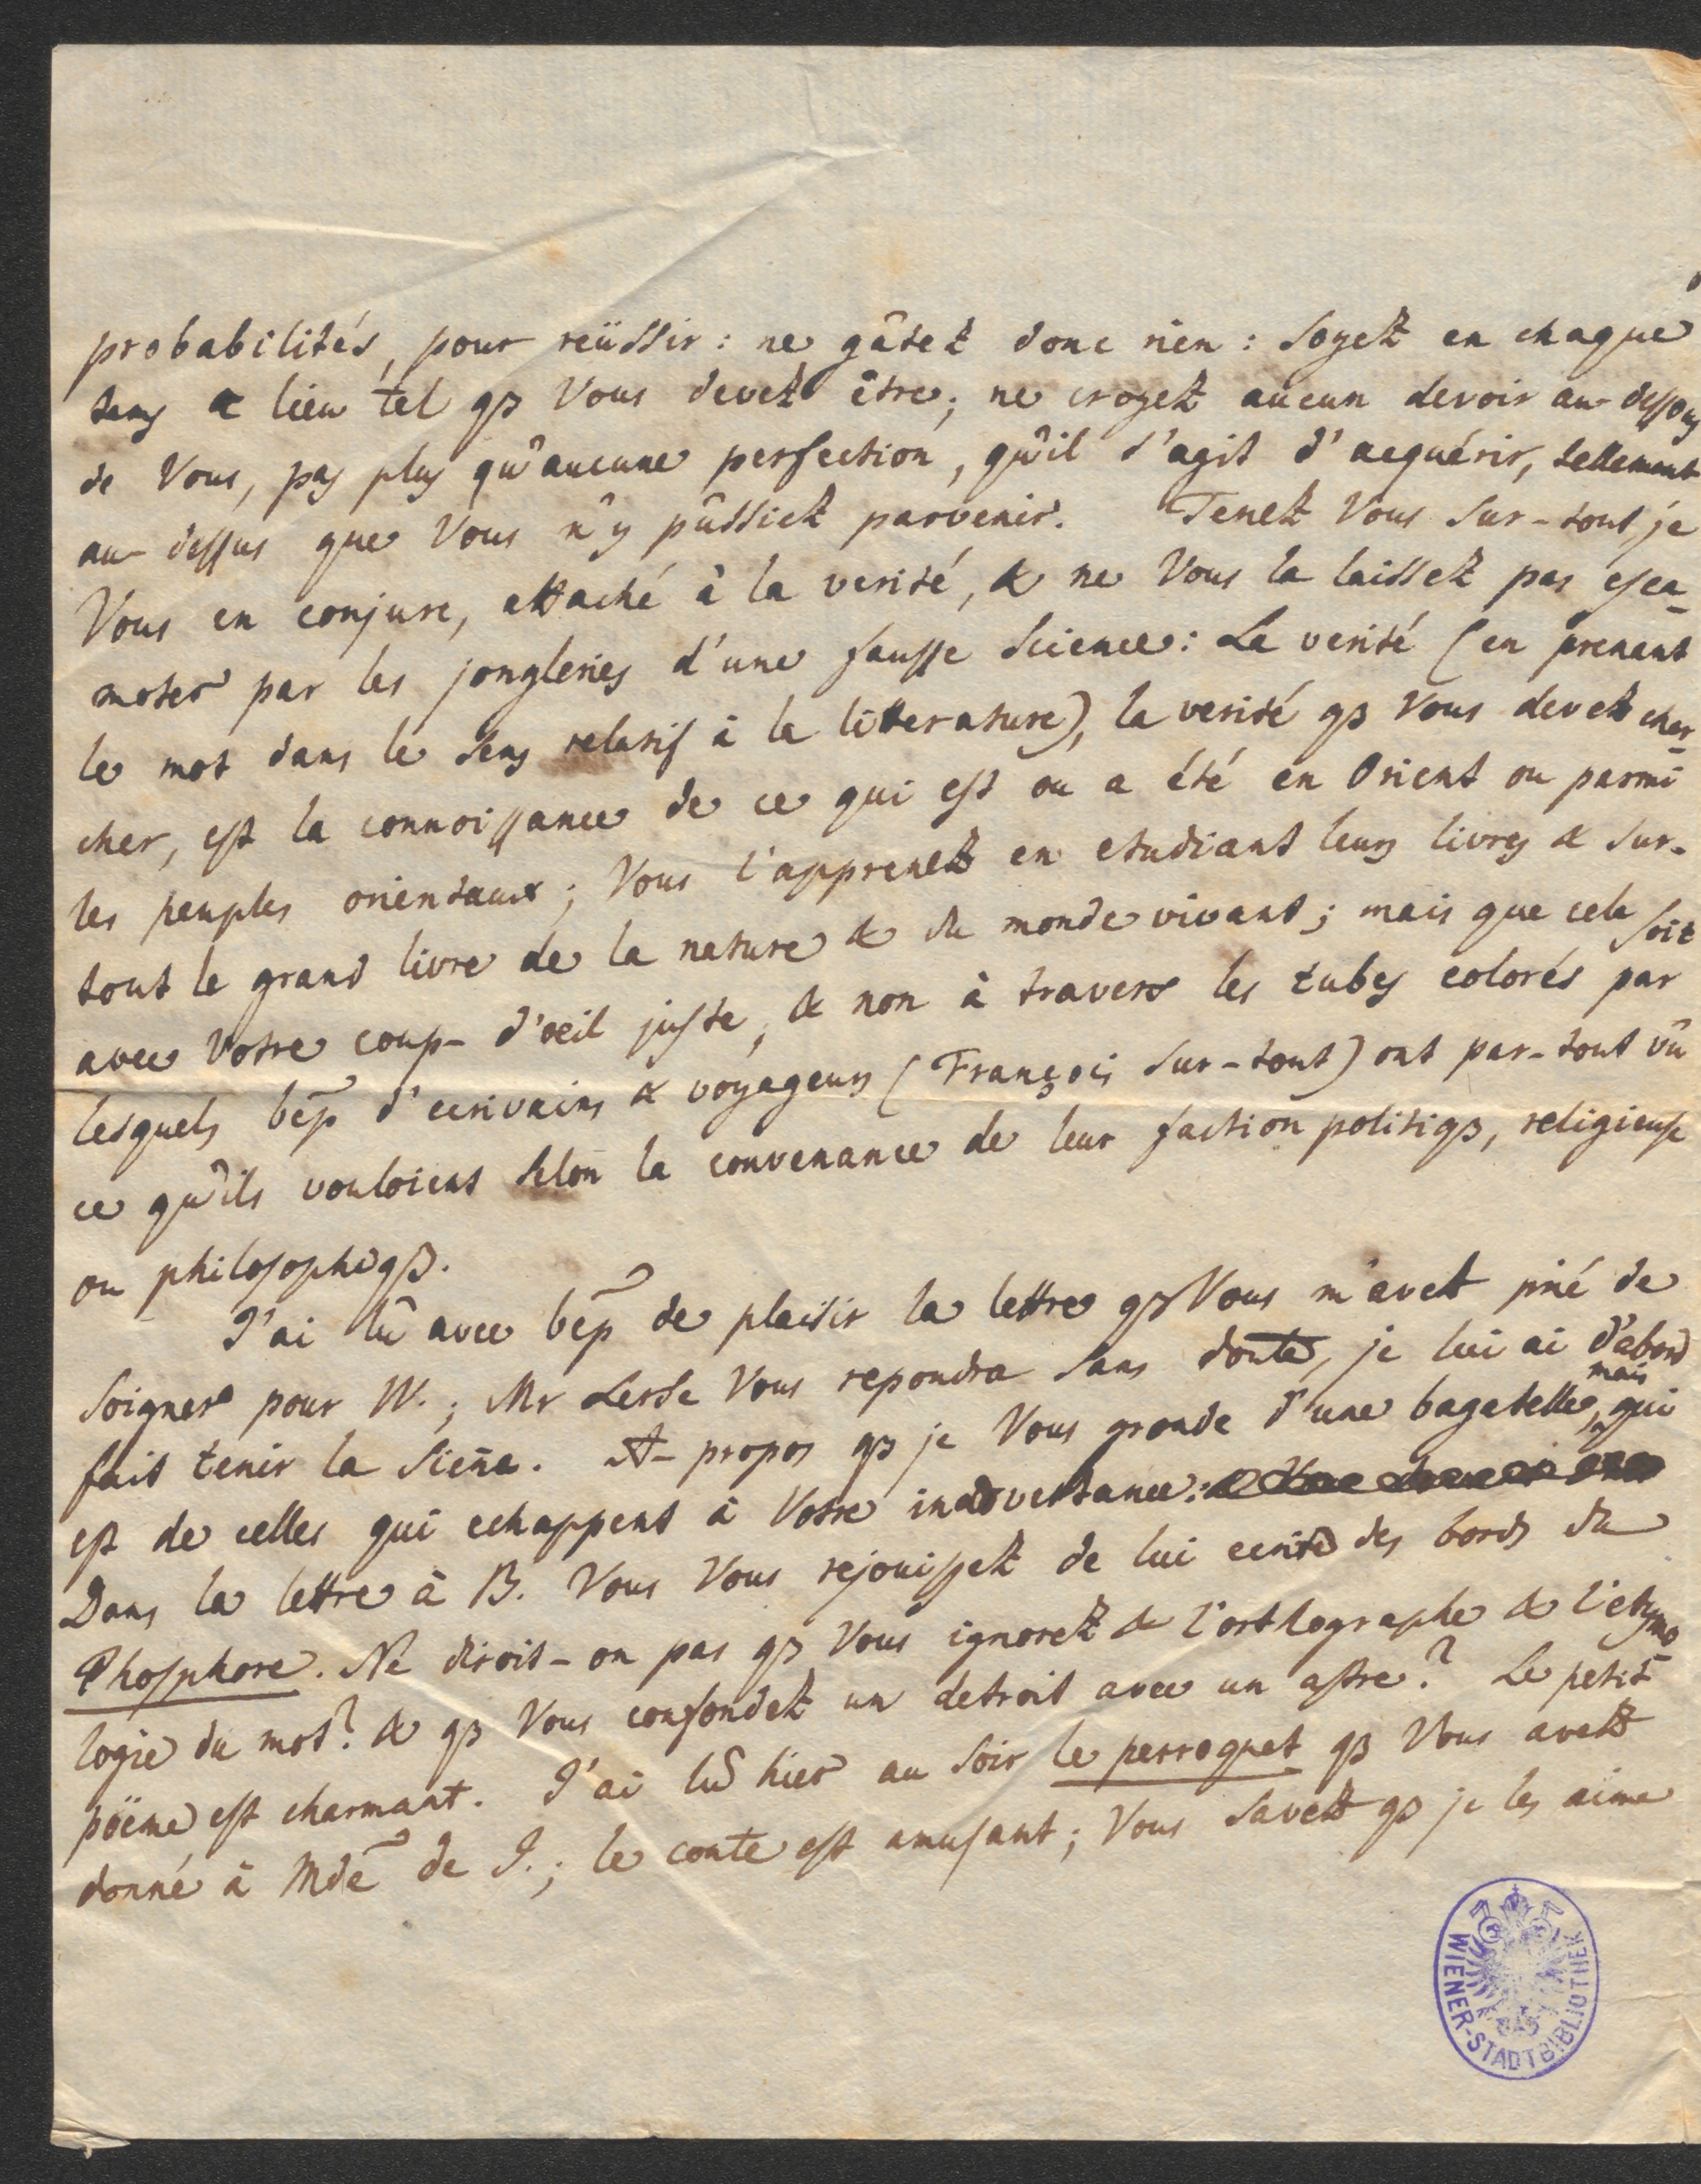 probabilités, pour reüssir: ne gâtez donc rien: soyez en chaque
tems & lieu tel qe Vous devez être; ne croyez aucun devoir au-dessous
de Vous, pas plus qu'aucune perfection, qu'il s'agit d'acquérir, tellement
au-dessus que Vous n'y pûssiez parvenir. Tenez Vous sur-tout, je
Vous en conjure, attaché à la verité, & ne Vous la laissez pas esca-
moter par les jongleries d'une fausse science: La verité (en prenant
le mot dans le sens relatif à la litterature), la verité qe Vous devez cher-
cher, est la connoissance de ce qui est ou a été en Orient ou parmi
les peuples orientaux; Vous l'apprenez en etudiant leurs livres & sur-
tout le grand livre de la nature & du monde vivant; mais que cela soit
avec Votre coup-d'oeil juste, & non à travers les tubes colorés par
lesquels bep d'ecrivains & voyageurs (François sur-tout) ont par-tout vû
ce qu'ils vouloient selon la convenance de leur faction politiqe, religieuse
ou philosophiqe.
J'ai lû avec bep de plaisir la lettre qe Vous m'avez prié de
soigner pour W.; Mr Lerse Vous repondra sans doute, je lui ai d'abord
fait tenir la siene. A-propos qe je Vous gronde d'une bagatelle, mais qui
est de celles qui echappent à Votre inadvertance:
Dans la lettre à B. Vous Vous rejouissez de lui ecrire des bords du
Phosphore. Ne diroit-on pas qe Vous ignorez & l'orthographe & l'etymo-
logie du mot? & qe Vous confondez un detroit avec un astre? Le petit
pöeme est charmant. J'ai lu hier au soir le perroquet qe Vous avez
donné à Mde de J.; le conte est amusant; Vous savez qe je les aime
WIENER-STADTBIBLIOTHEK